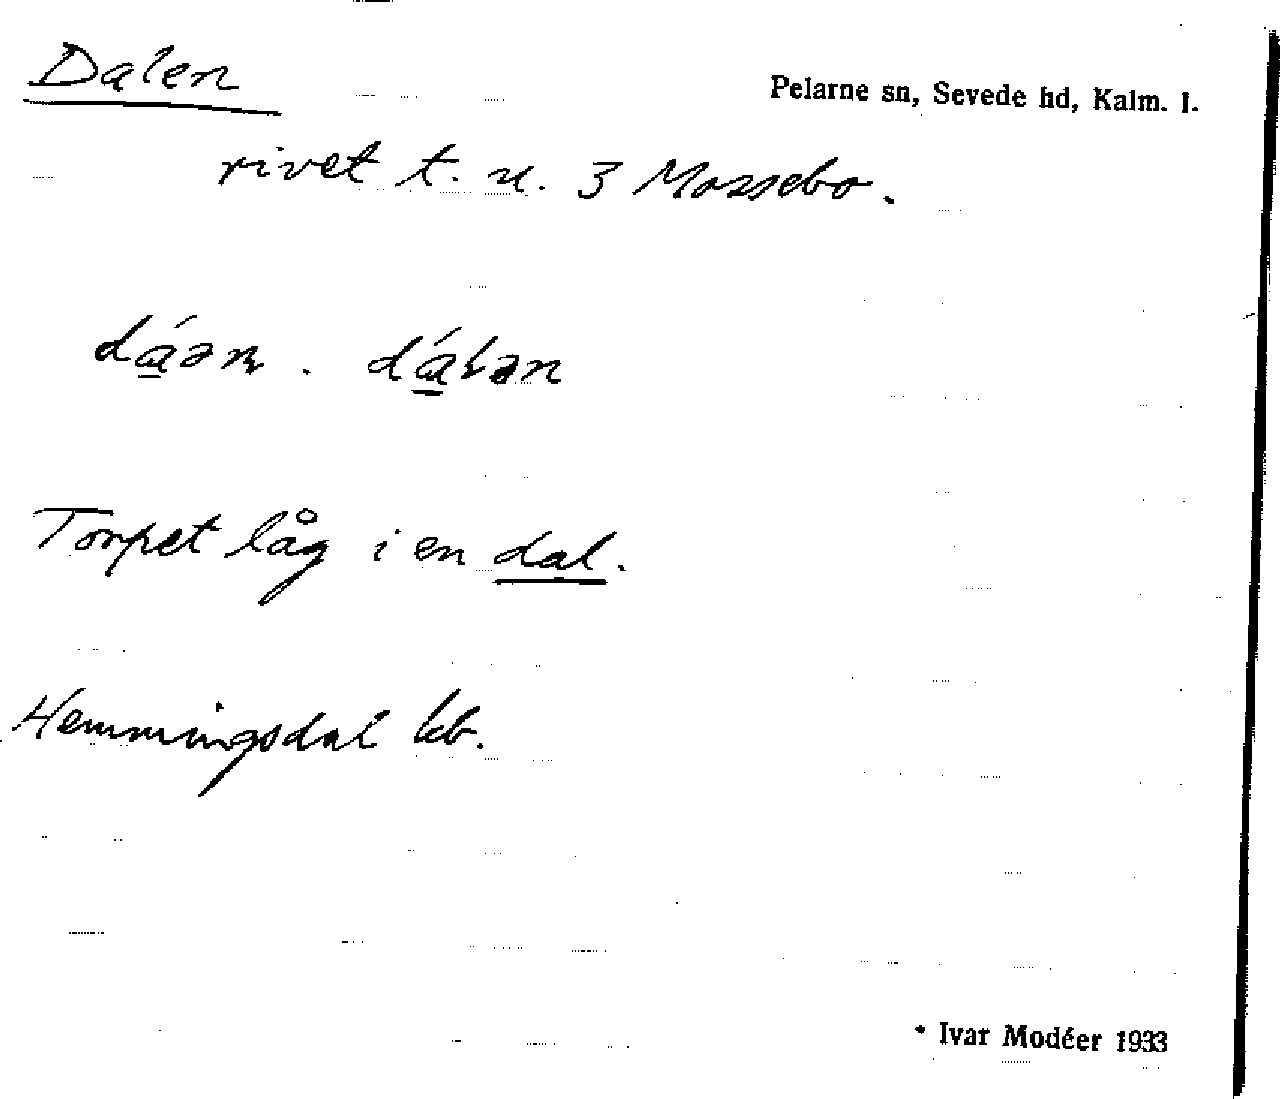 Dalen
Pelarne sn, Sevede hd, Kalm. l.
rivet t. u. 3 Mossebo.
dáən . dálən
Torpet låg i en dal.
Hemmingsdal kb.
* Ivar Modéer 1933